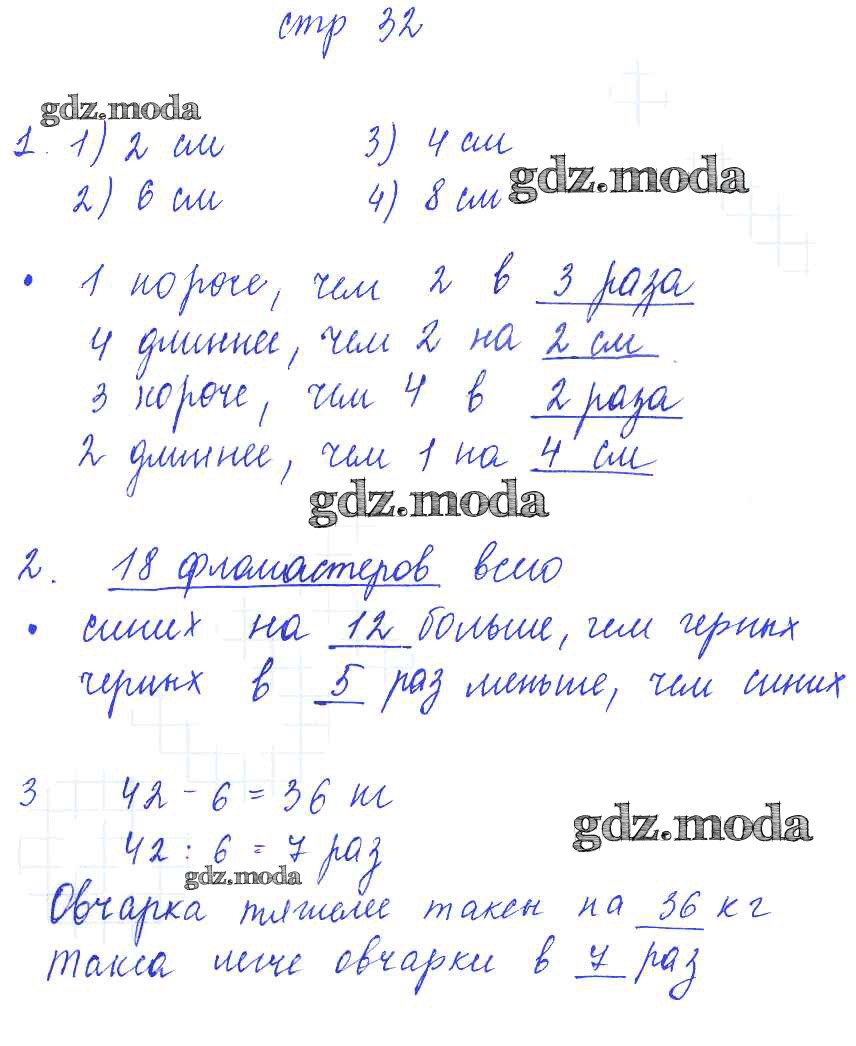 стр 32
gdz.moda
1. 1) 2 см 3) 4 см
gdz.moda
2) 6 см 4) 8 см
• 1 короче, чем 2 в 3 раза
4 длиннее, чем 2 на 2 см
3 короче, чем 4 в 2 раза
2 длиннее, чем 1 на 4 см
gdz.moda
2. 18 фломастеров всего
• синих на 12 больше, чем черных
черных в 5 раз меньше, чем синих
3 42 - 6 = 36 кг
gdz.moda
42 : 6 = 7 раз
gdz.moda
Овчарка тяжелее таксы на 36 кг
Такса легче овчарки в 7 раз